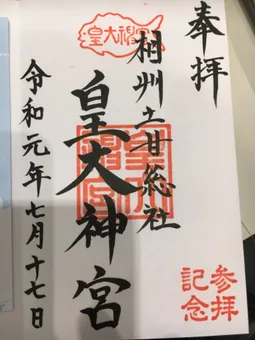 奉拝
相州土甘総社
皇大神宮
令和元年七月十七日
参拝
記念